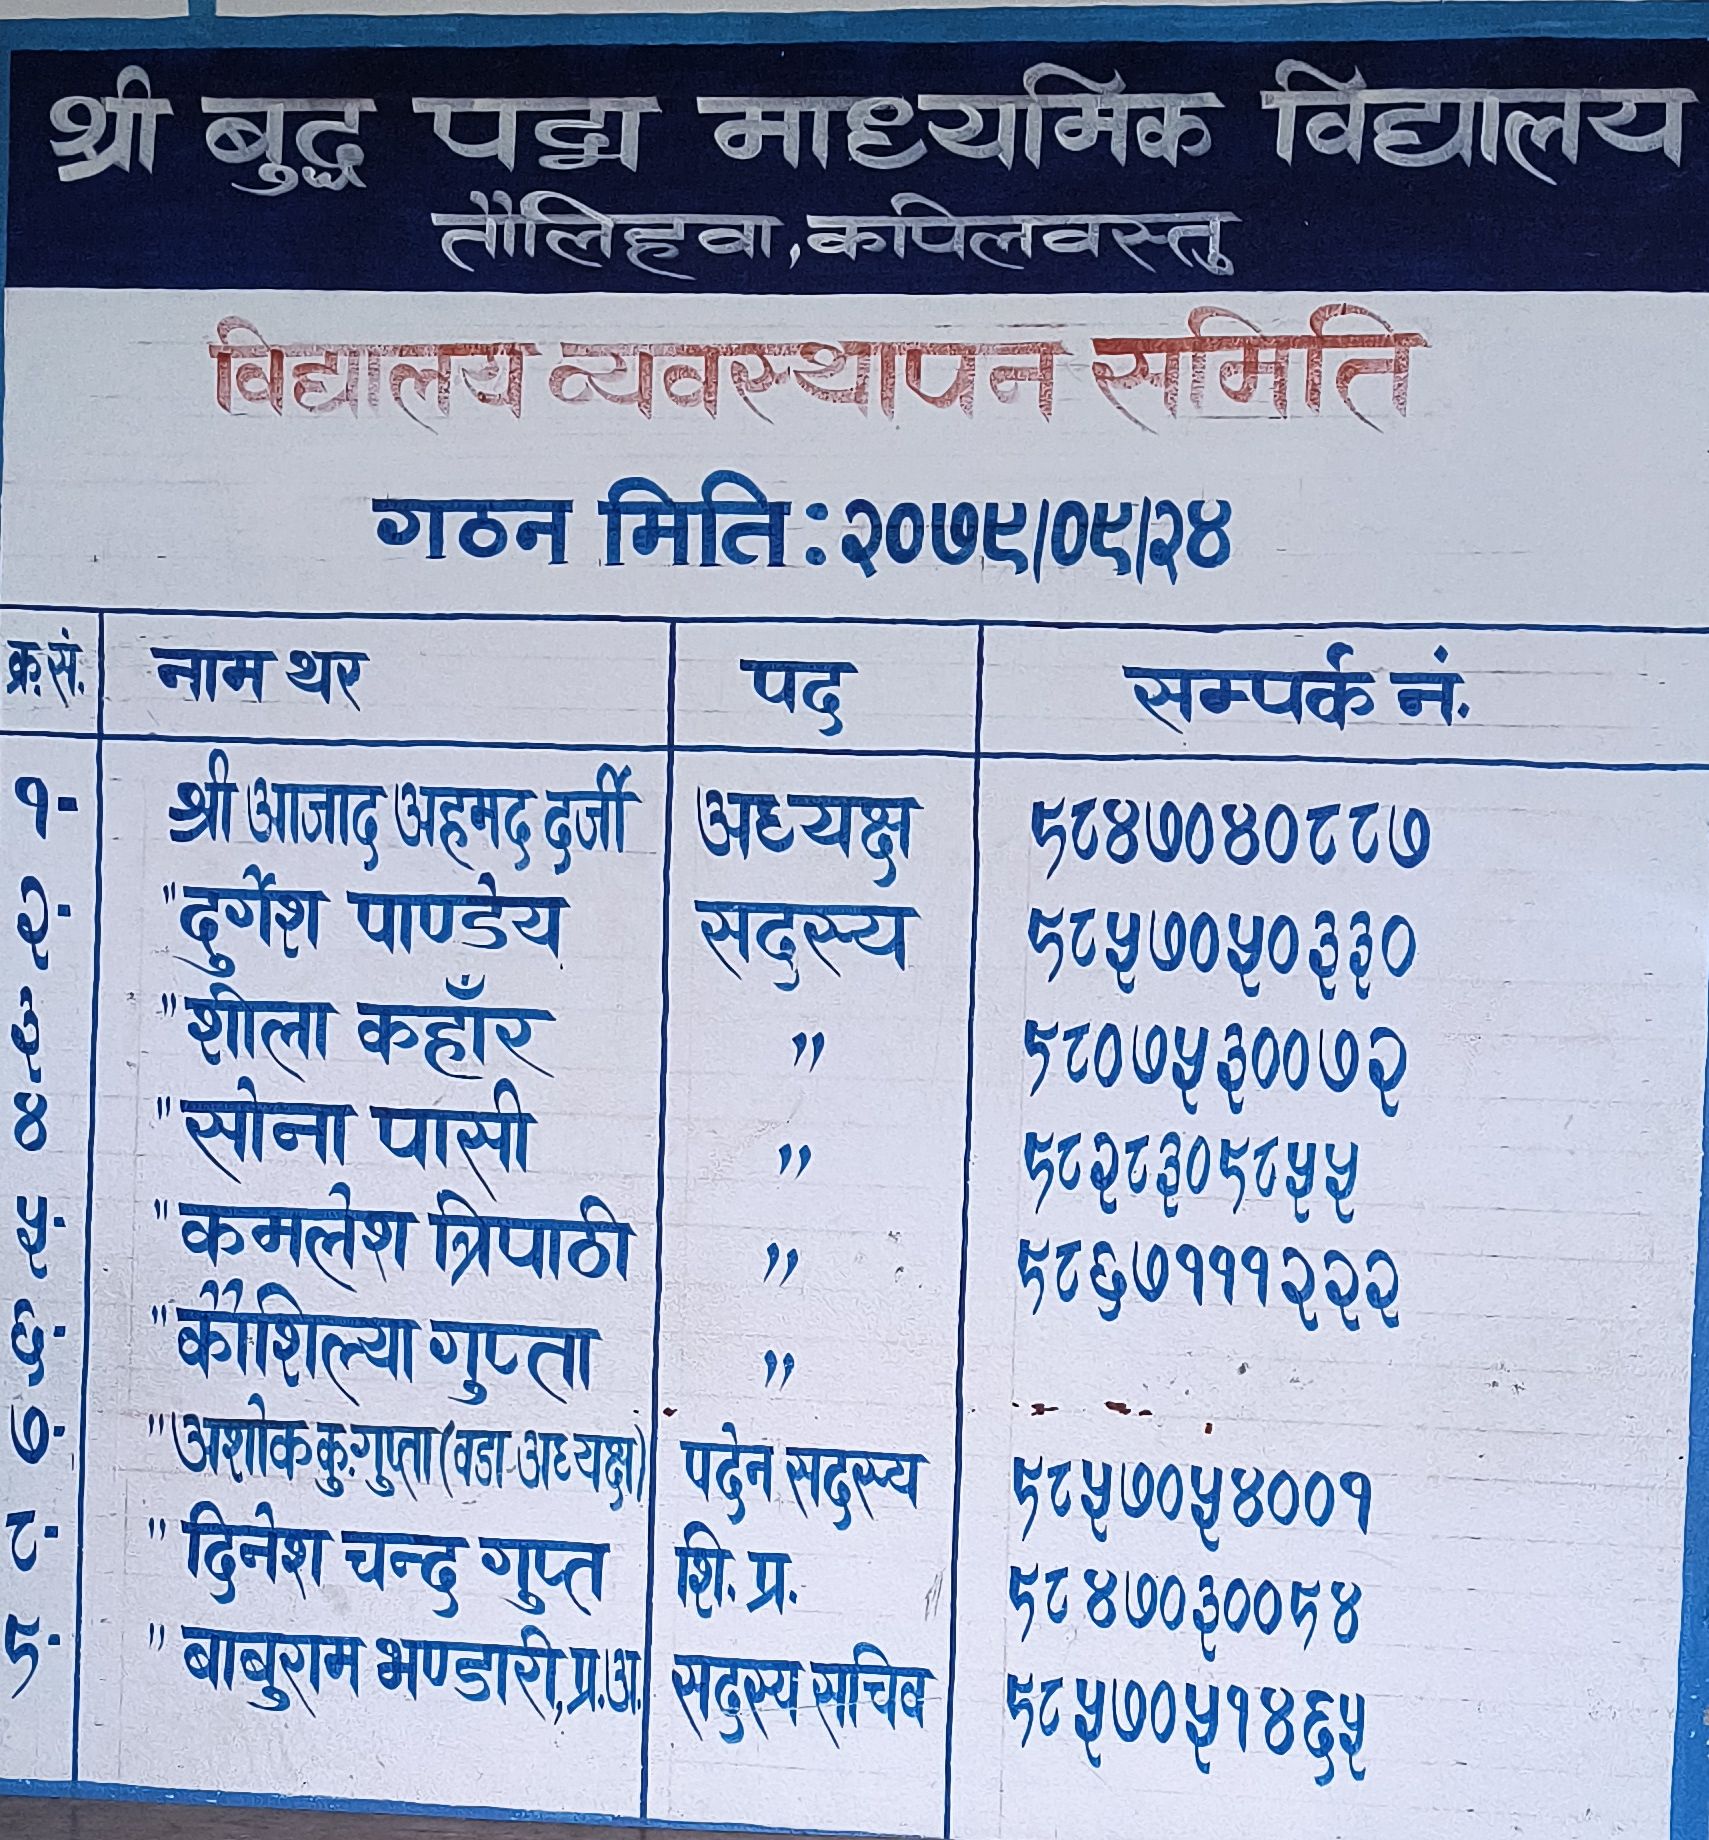 श्री बुद्ध पद्म माध्यमिक विद्यालय
तौलिहवा, कपिलवस्तु
विद्यालय व्यवस्थापन समिति
गठन मिति : २०७९/०९/२४
क्र.सं. नाम थर पद सम्पर्क नं.
१- श्री आजाद अहमद दर्जी अध्यक्ष ९८४७०४०८८७
२- " दुर्गेश पाण्डेय सदस्य ९८५७०५०३३०
३ " शीला कहाँर " ९८०७५३००७२
४ " सोना पासी " ९८२८३०९८५५
५- " कमलेश त्रिपाठी " ९८६७१११२२२
६- " कौशिल्या गुप्ता "
७- " अशोक कु. गुप्ता (वडा अध्यक्ष) पदेन सदस्य ९८५७०५४००१
८- " दिनेश चन्द्र गुप्त शि. प्र. ९८४७०३००९४
९- " बाबुराम भण्डारी, प्र.अ. सदस्य सचिव ९८५७०५१४६५